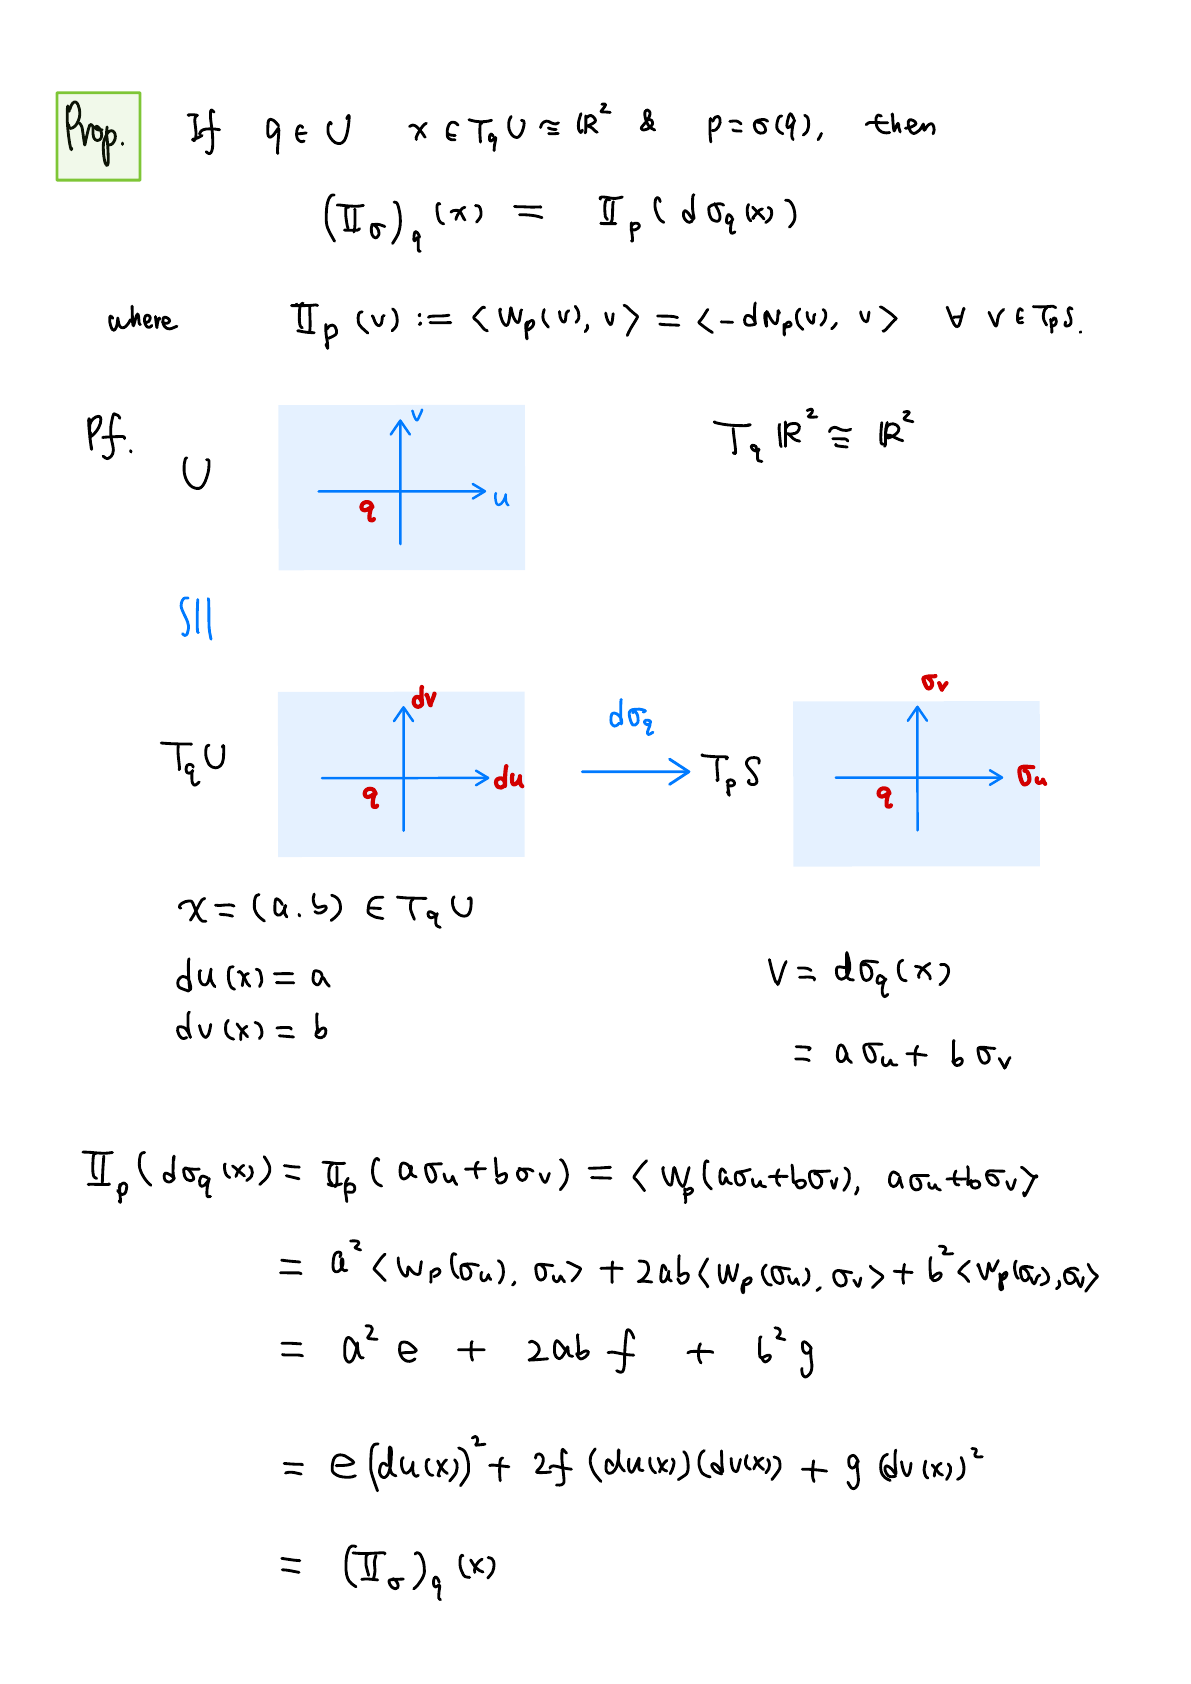 Prop. If q ∈ U x ∈ T_q U ≅ ℝ² & p = σ(q), then
(II_σ)_q (x) = II_p (dσ_q (x))
where II_p (v) := <W_p(v), v> = <-dN_p(v), v> ∀ v ∈ T_p S.
Pf.
U
v
u
q
T_q ℝ² ≅ ℝ²
S||
T_q U
dv
du
q
dσ_q
T_p S
σ_v
σ_u
q
x = (a.b) ∈ T_q U
du(x) = a
dv(x) = b
V = dσ_q(x)
= a σ_u + b σ_v
II_p (dσ_q (x)) = II_p (a σ_u + b σ_v) = <W_p(aσ_u+bσ_v), aσ_u+bσ_v>
= a² <W_p(σ_u), σ_u> + 2ab <W_p(σ_u), σ_v> + b² <W_p(σ_v), σ_v>
= a² e + 2ab f + b² g
= e(du(x))² + 2f (du(x))(dv(x)) + g (dv(x))²
= (II_σ)_q (x)